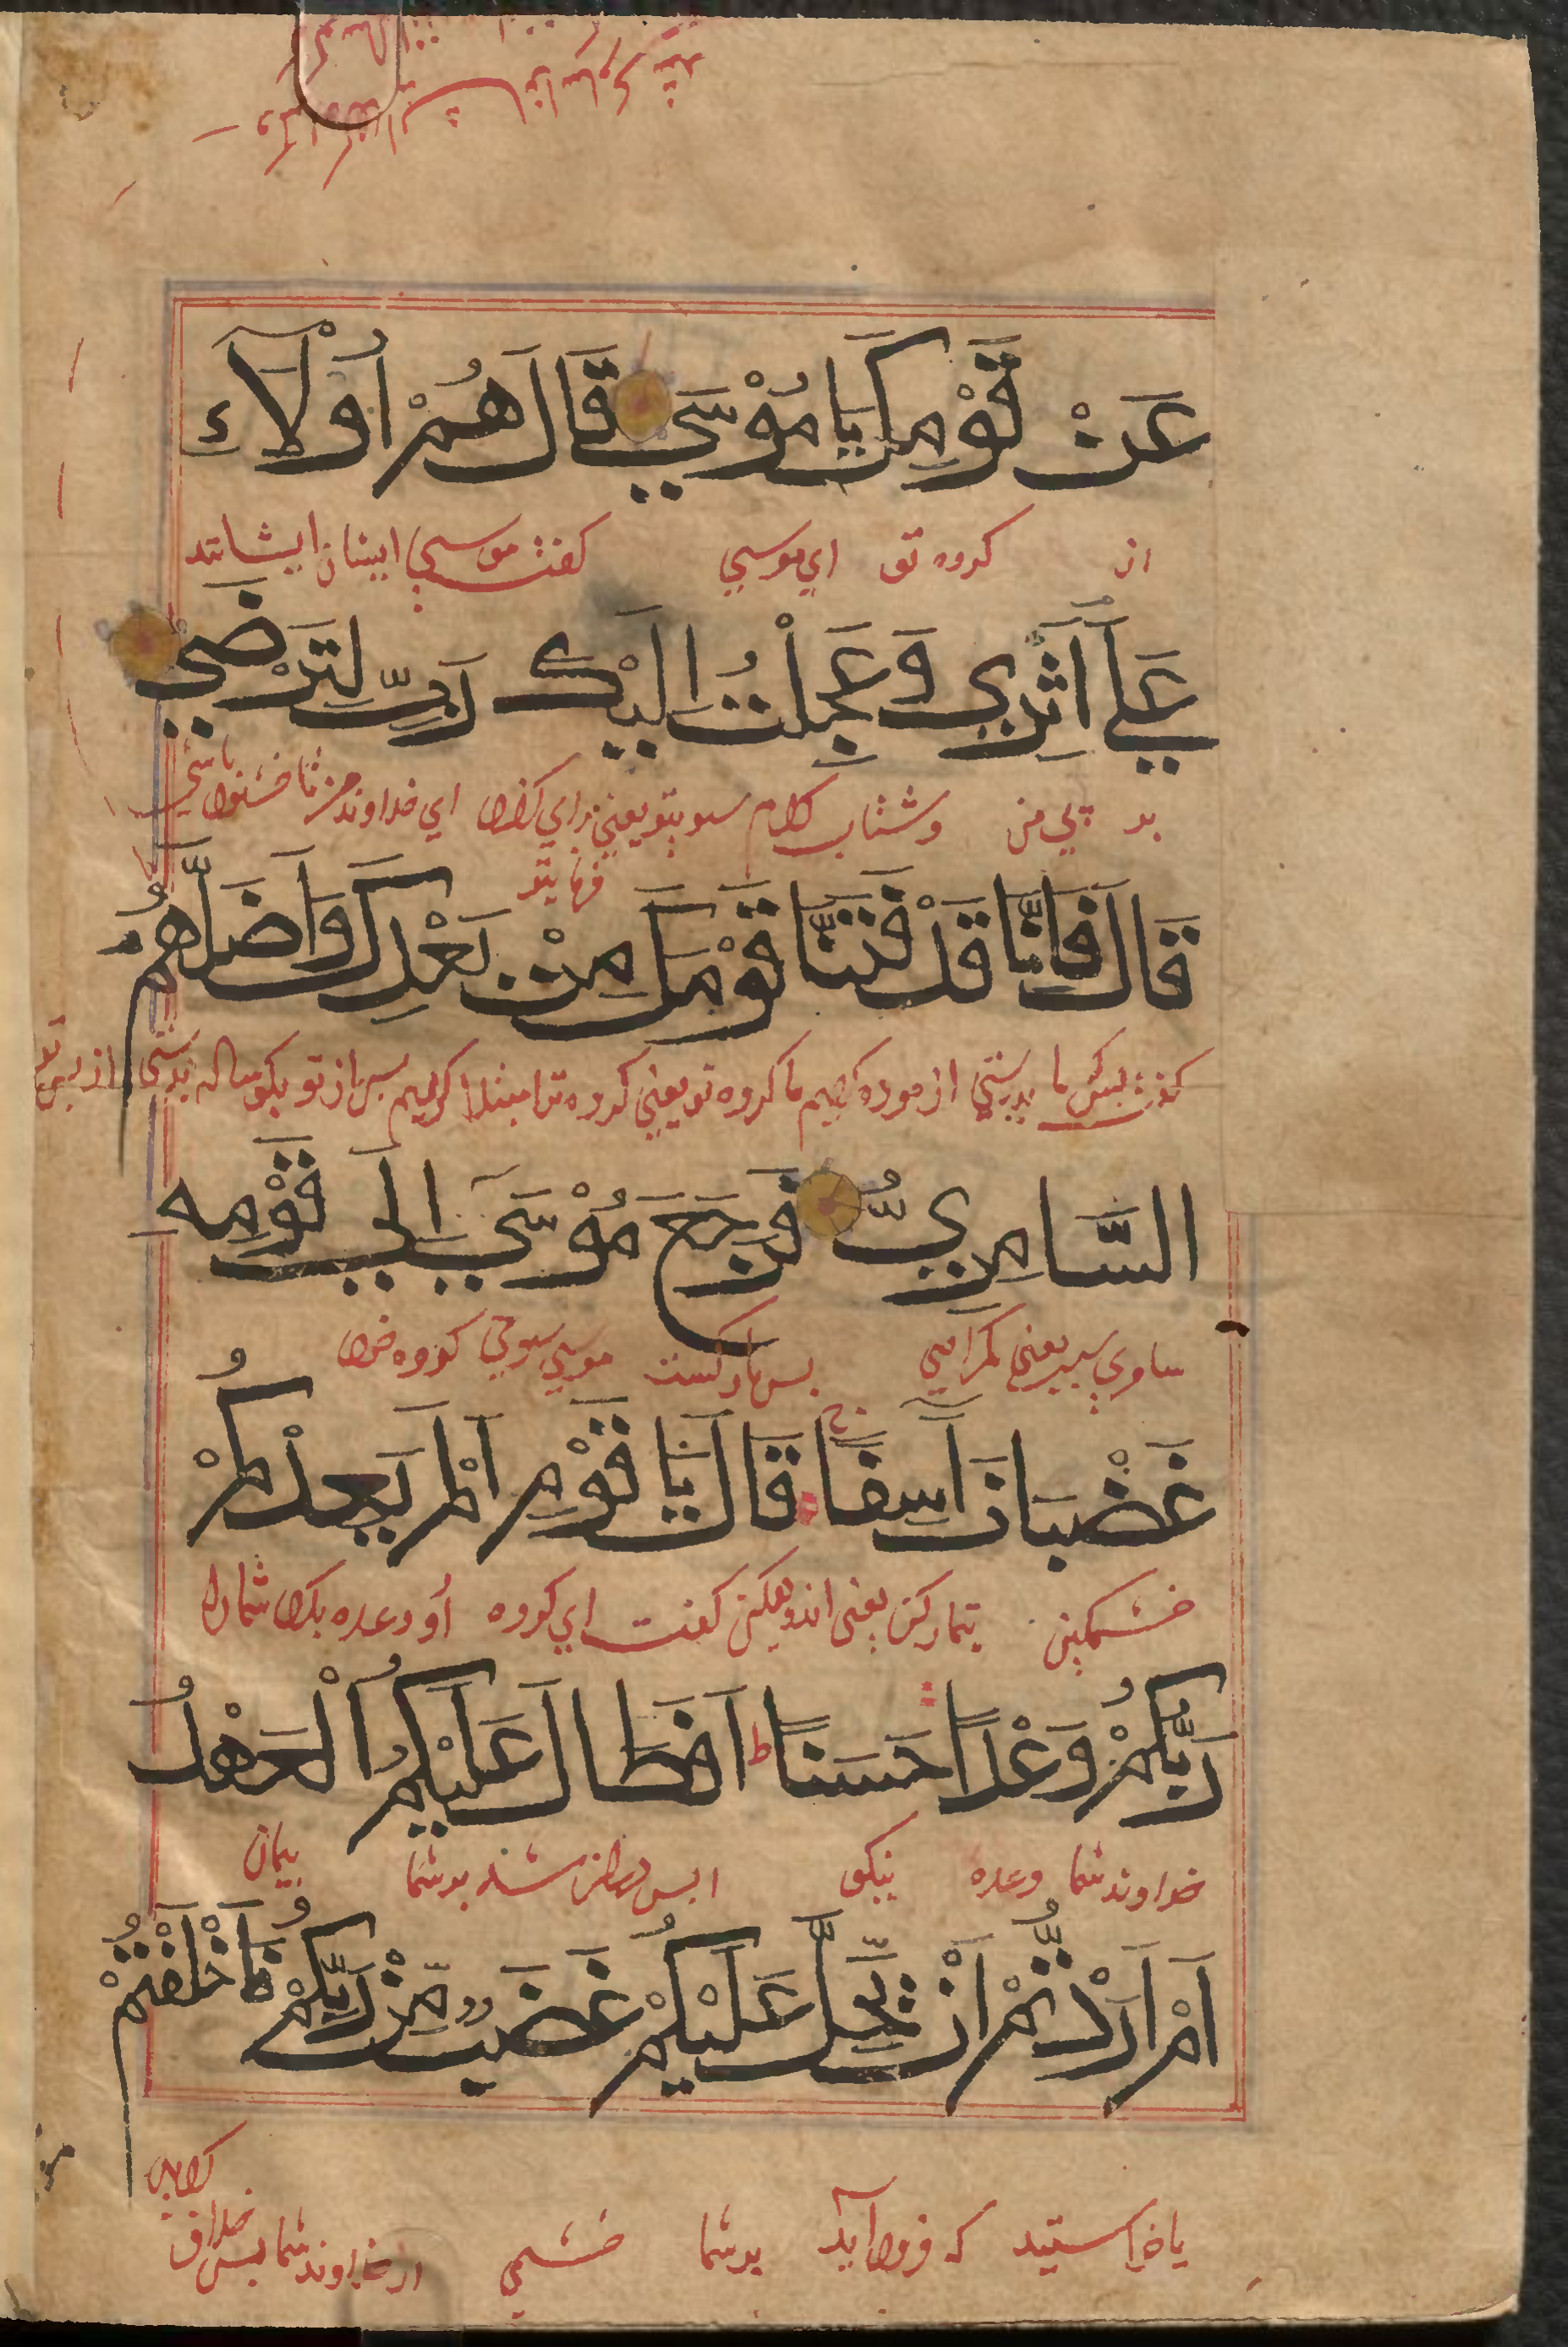 عَنْ قَوْمِكَ يَا مُوْسَي قَالَ هُمْ اُولَآءِ
از گروه تو اي موسي گفت موسي اينان ايشانند
عَلَي اَثَرِي وَعَجِلْتُ اِلَيْكَ رَبِّ لِتَرْضَي
بر پي من و شتاب كردم سوي تو يعني براي اي خداوند من تا خشنود باشي
قَالَ فَاِنَّا قَدْ فَتَنَّا قَوْمَكَ مِنْ بَعْدِكَ وَاَضَلَّهُمُ
گفت بدرستي ازموده كرديم ما گروه تو يعني گروه ترا مبتلا كرديم پس از تو بگوساله پرستي از پس تو
السَّامِرِيُّ فَرَجَعَ مُوْسَي اِلَي قَوْمِهِ
سامري يعني گمراهي پس بازگشت موسي سوي گروه خود
غَضْبَانَ اَسِفًا قَالَ يَا قَوْمِ اَلَمْ يَعِدْكُمْ
خشمگين يعني اندوهگين گفت اي گروه او وعده نكرد شما را
رَبُّكُمْ وَعْدًا حَسَنًا ط اَفَطَالَ عَلَيْكُمُ الْعَهْدُ
خداوند شما وعده نيكو ا پس دراز شد بر شما پيمان
اَمْ اَرَدْتُّمْ اَنْ يَّحِلَّ عَلَيْكُمْ غَضَبٌ مِّنْ رَّبِّكُمْ فَاَخْلَفْتُمْ
يا خواستيد كه فرود آيد بر شما خشمي از خداوند شما پس خلاف كرديد